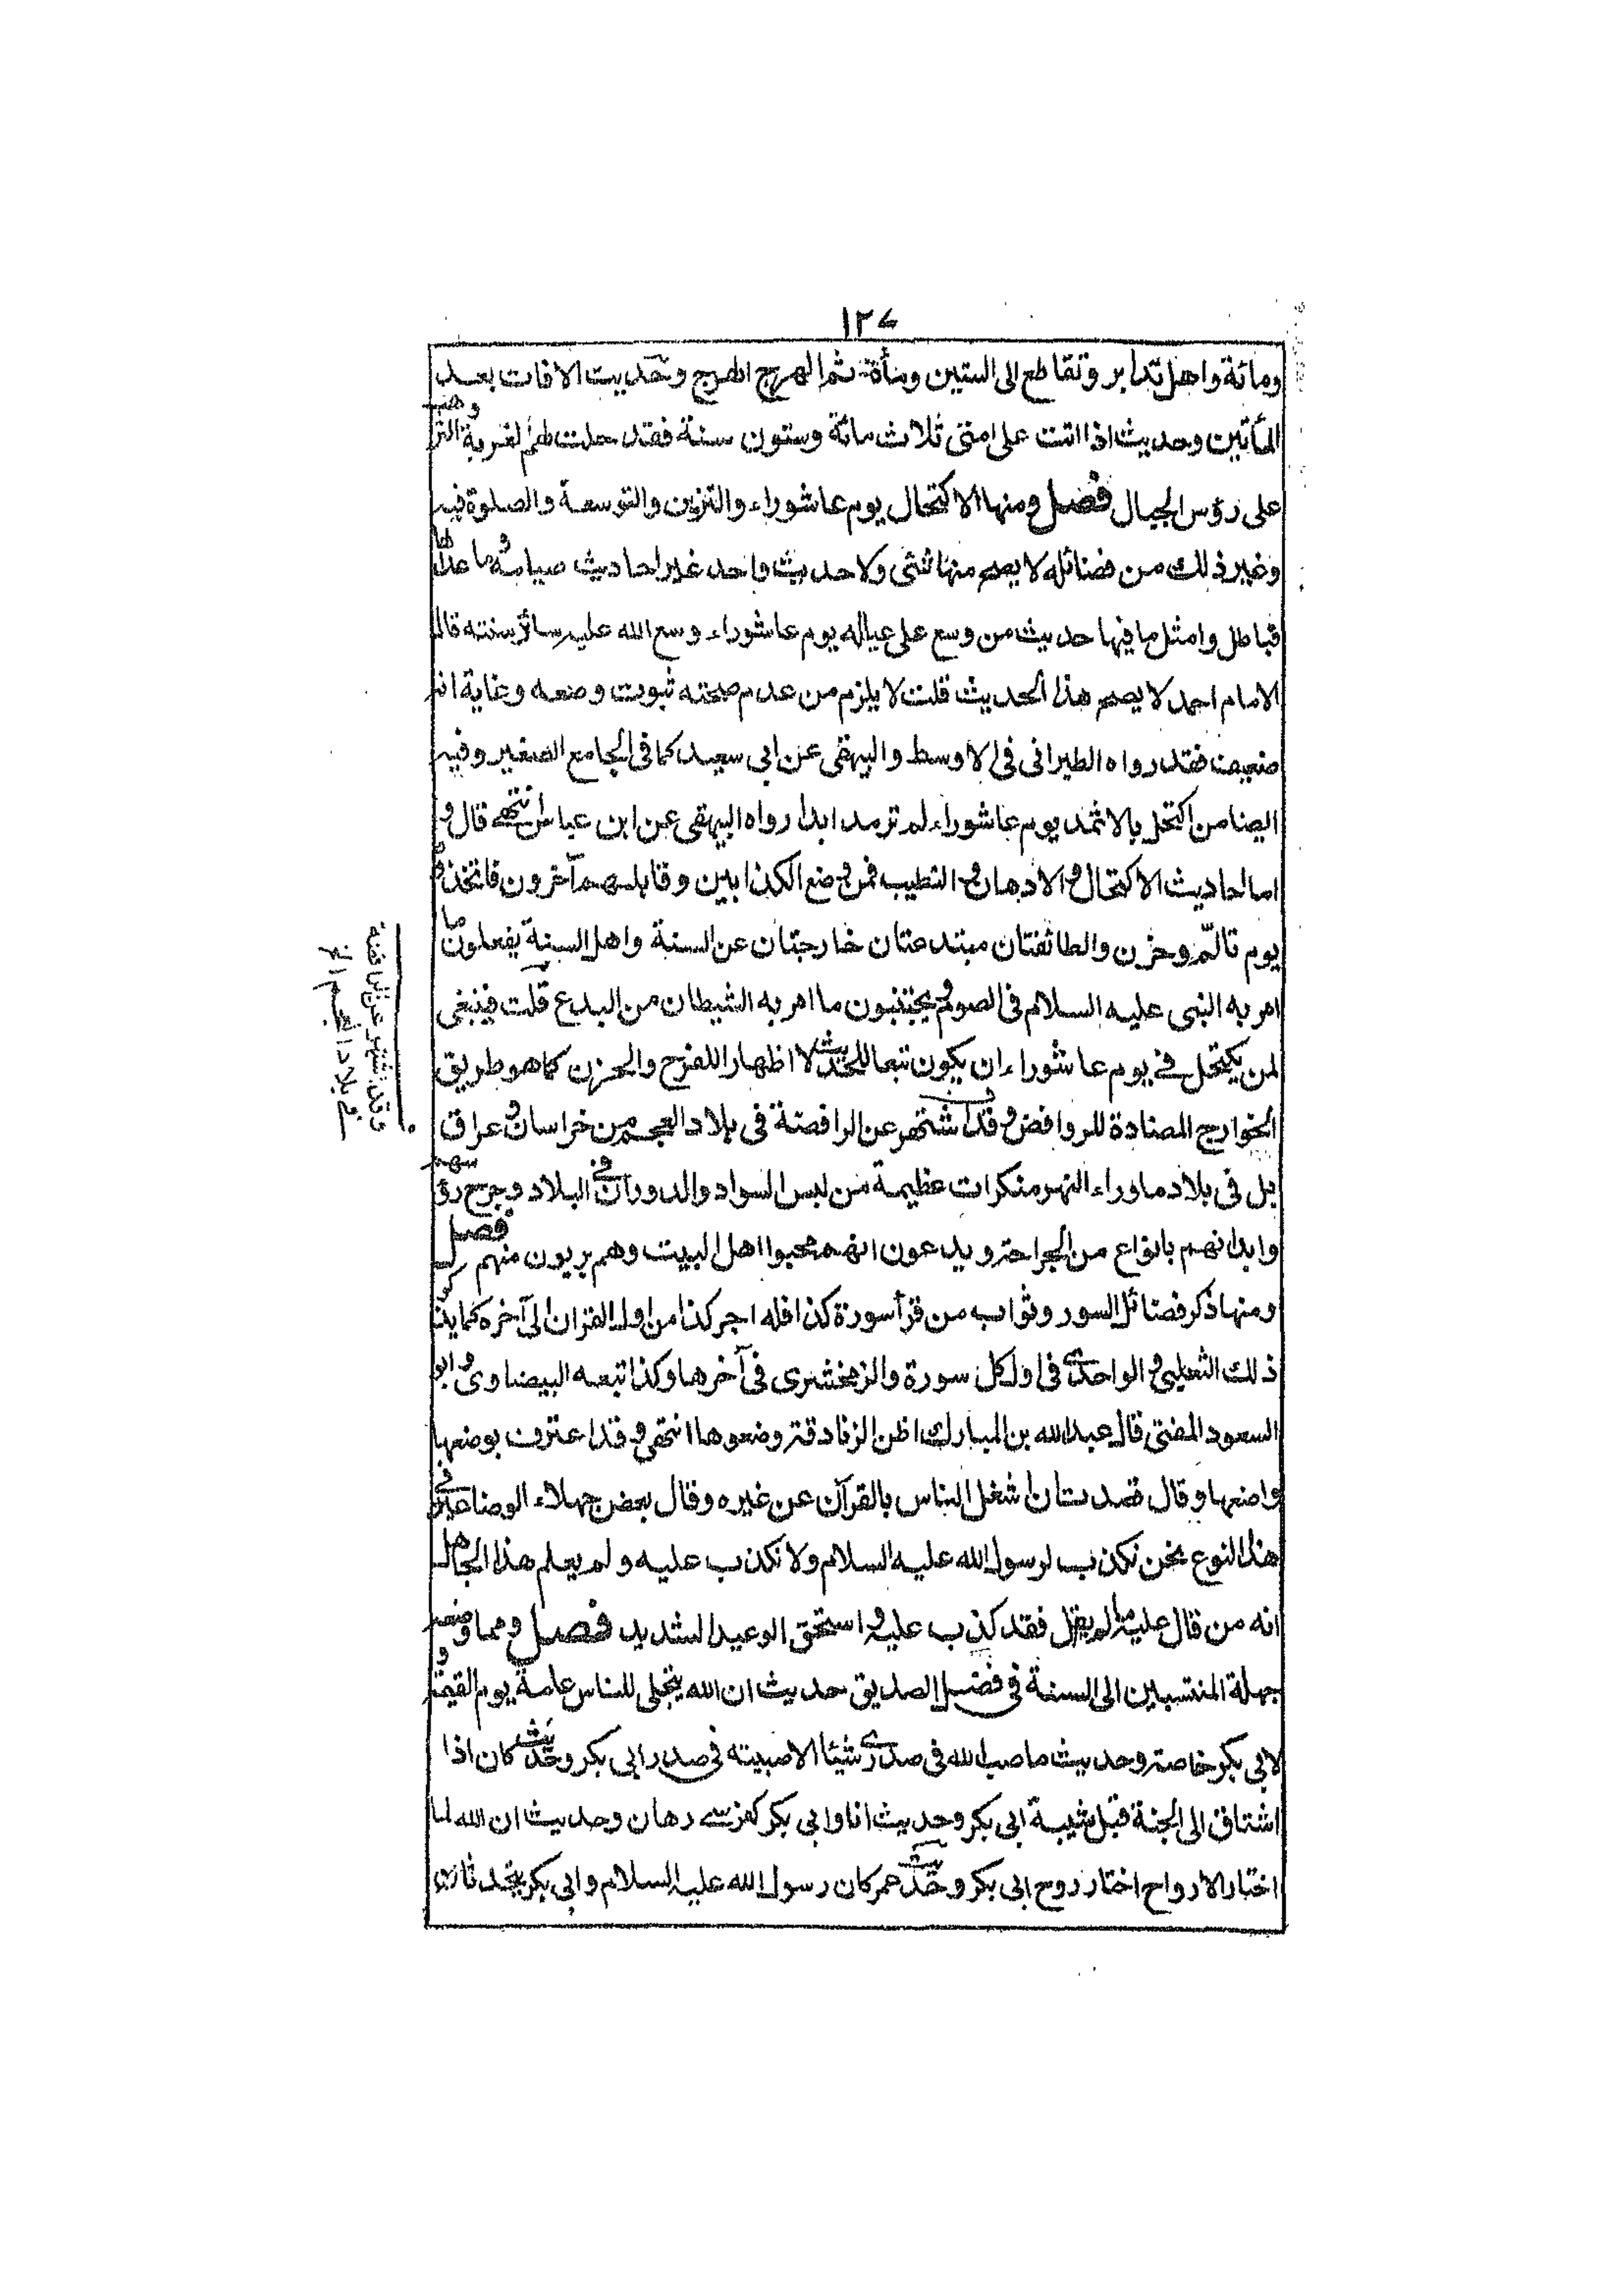 ١٢٧
ومائة واهل تدابر وتقاطع الى الستين ومأة ثم الهرج الهرج وحديث الافات بعد
المأتين وحديث اذا اتت على امتى ثلاث مائة وستون سنة فقد حلت لهم الغربة والترهب
على رؤس الجبال فصل ومنها الاكتحال يوم عاشوراء والتزين والتوسعة والصلوة فيه
وغير ذلك من فضائله لا يصح منها شئى ولا حديث واحد غير احاديث صيامه وما عداها
فباطل وامثل ما فيها حديث من وسع على عياله يوم عاشوراء وسع الله عليه سائر سنته قال
الامام احمد لا يصح هذا الحديث قلت لا يلزم من عدم صحته ثبوت وضعه وغاية انه
ضعيف فقد رواه الطبرانى فى الاوسط والبيهقى عن ابى سعيد كما فى الجامع الصغير وفيه
ايضا من اكتحل بالاثمد يوم عاشوراء لم ترمد ابدا رواه البيهقى عن ابن عباس انتهى قال و
اما احاديث الاكتحال والادهان والتطيب فمن وضع الكذابين وقابلهم آخرون فاتخذوه
يوم تالّم وحزن والطائفتان مبتدعتان خارجتان عن السنة واهل السنة يفعلون ما
امر به النبى عليه السلام فى الصوم ويجتنبون ما امر به الشيطان من البدع قلت فينبغى
لمن يكتحل فى يوم عاشوراء ان يكون تبعا للحديث لا اظهارا للفرح والحزن كما هو طريق
الخوارج المضادة للروافض وقد اشتهر عن الرافضة فى بلاد العجم من خراسان وعراق
بل فى بلاد ماوراء النهر منكرات عظيمة من لبس السواد والدوران فى البلاد وجرح رؤسهم
وابدانهم بانواع من الجراحة ويدعون انهم محبوا اهل البيت وهم بريون منهم فصل
ومنها ذكر فضائل السور وثواب من قرأ سورة كذا فله اجر كذا من اول القران الى آخره كما يذكر
ذلك الثعلبى والواحدى فى اول كل سورة والزمخشرى فى آخرها وكذا تبعه البيضاوى وابو
السعود المفتى قال عبد الله بن المبارك اظن الزنادقة وضعوها انتهى وقد اعترف بوضعها
واضعها وقال قصدت ان اشغل الناس بالقرآن عن غيره وقال بعض جهلاء الوضاعين فى
هذا النوع نحن نكذب لرسول الله عليه السلام ولا نكذب عليه ولم يعلم هذا الجاهل
انه من قال عليه ما لم يقل فقد كذب عليه واستحق الوعيد الشديد فصل ومما وضعه
جهلة المنتسبين الى السنة فى فضل الصديق حديث ان الله يتجلى للناس عامة يوم القيمة و
لابى بكر خاصة وحديث ما صب الله فى صدرى شيئا الا صببته فى صدر ابى بكر وحديث كان اذا
اشتاق الى الجنة قبل شيبة ابى بكر وحديث انا وابى بكر كفرسے رهان وحديث ان الله لما
اختار الارواح اختار روح ابى بكر وحديث عمر كان رسول الله عليه السلام وابى بكر يتحدثان
وقد اشتهر عن الرافضة
فى بلاد العجم الخ